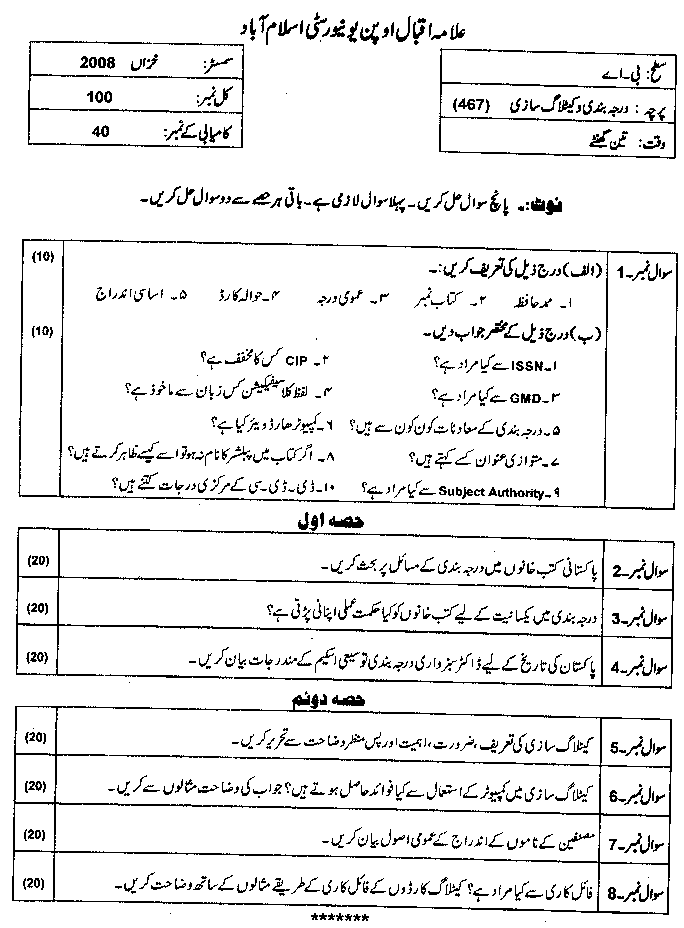 علامہ اقبال اوپن یونیورسٹی اسلام آباد
سطح: بی۔اے
پرچہ: درجہ بندی و کیٹلاگ سازی (467)
وقت: تین گھنٹے
سمسٹر: خزاں 2008
کل نمبر: 100
کامیابی کے نمبر: 40
نوٹ:۔ پانچ سوال حل کریں۔ پہلا سوال لازمی ہے۔ باقی ہر حصے سے دو سوال حل کریں۔
سوال نمبر۔1 (الف) درج ذیل کی تعریف کریں:۔ (10)
۱۔ ممد حافظہ ۲۔ کتاب نمبر ۳۔ عمومی درجہ ۴۔ حوالہ کارڈ ۵۔ اساسی اندراج
(ب) درج ذیل کے مختصر جواب دیں۔ (10)
۱۔ ISSN سے کیا مراد ہے؟ ۲۔ CIP کس کا مخفف ہے؟
۳۔ GMD سے کیا مراد ہے؟ ۴۔ لفظ کلاسیفیکیشن کس زبان سے ماخوذ ہے؟
۵۔ درجہ بندی کے معاونات کون کون سے ہیں؟ ۶۔ کمپیوٹر ہارڈ ویئر کیا ہے؟
۷۔ متوازی عنوان کسے کہتے ہیں؟ ۸۔ اگر کتاب میں پبلشر کا نام نہ ہو تو اسے کیسے ظاہر کرتے ہیں؟
۹۔ Subject Authority سے کیا مراد ہے؟ ۱۰۔ ڈی۔ڈی۔سی کے مرکزی درجات کتنے ہیں؟
حصہ اول
سوال نمبر۔2 پاکستانی کتب خانوں میں درجہ بندی کے مسائل پر بحث کریں۔ (20)
سوال نمبر۔3 درجہ بندی میں یکسانیت کے لیے کتب خانوں کو کیا حکمت عملی اپنانی پڑتی ہے؟ (20)
سوال نمبر۔4 پاکستان کی تاریخ کے لیے ڈاکٹر سبزواری درجہ بندی توسیعی اسکیم کے مندرجات بیان کریں۔ (20)
حصہ دوئم
سوال نمبر۔5 کیٹلاگ سازی کی تعریف، ضرورت، اہمیت اور پس منظر وضاحت سے تحریر کریں۔ (20)
سوال نمبر۔6 کیٹلاگ سازی میں کمپیوٹر کے استعمال سے کیا فوائد حاصل ہوتے ہیں؟ جواب کی وضاحت مثالوں سے کریں۔ (20)
سوال نمبر۔7 مصنفین کے ناموں کے اندراج کے عمومی اصول بیان کریں۔ (20)
سوال نمبر۔8 فائل کاری سے کیا مراد ہے؟ کیٹلاگ کارڈوں کے فائل کاری کے طریقے مثالوں کے ساتھ وضاحت کریں۔ (20)
*******